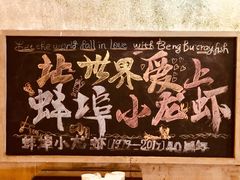 Let the world fall in love with Beng Bu crayfish
让世界爱上
蚌埠小龙虾
蚌埠小龙虾(1979-2017)40周年